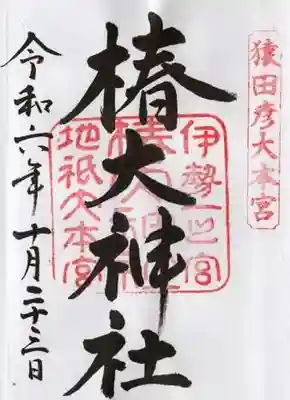 猿田彦大本宮
椿大神社
伊勢一之宮
椿大神社
地祇大本宮
令和六年十月二十三日